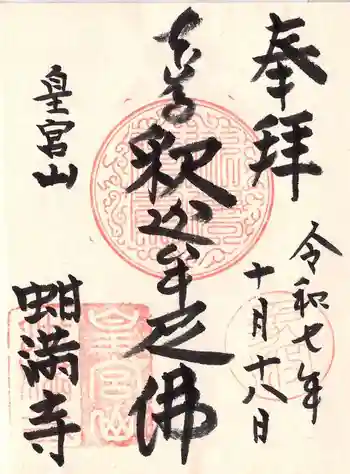 奉拝
令和七年
十月十八日
釈迦牟尼佛
皇宮山
蚶満寺
皇宮山